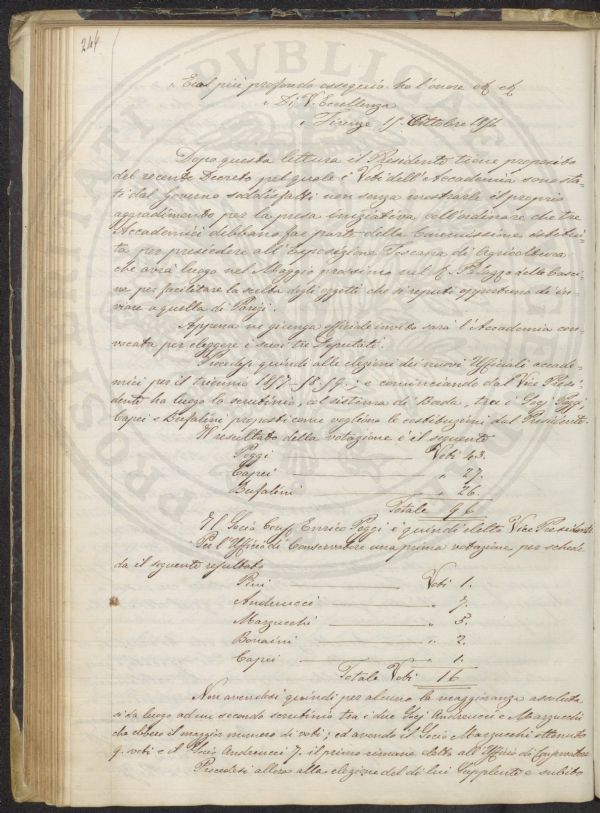 244
" Col più profondo ossequio ho l'onore ec ec
" Di V. Eccellenza
" Firenze 15 Ottobre 1856
Dopo questa lettura il Presidente tiene proposito
del recente Decreto pel quale i Voti dell'Accademia sono sta-
ti dal Governo soddisfatti non senza mostrarle il proprio
aggradimento per la presa iniziativa coll'ordinare che tre
Accademici debbano far parte della Commissione
ta per presiedere all'Esposizione Toscana di Agricoltura
che avrà luogo nel Maggio prossimo nel R. Palazzo delle Casci-
ne per facilitare la scelta degli oggetti che si reputi opportuno di in-
viare a quella di Parigi.
Appena ne giunga officiale invito sarà l'Accademia con-
vocata per eleggere i suoi tre Deputati.
Procedesi quindi alle elezioni dei nuovi Uffiziali accade-
mici per il triennio 1857-58-59.; e cominciando dal Vice Presi-
dente ha luogo lo scrutinio, col sistema di Borda, tra i Socj Poggi,
Capei e Bufalini proposti come vogliono le costituzioni dal Presidente.
Il resultato della votazione è il seguente
Poggi Voti 43.
Capei " 27.
Bufalini " 26.
Totale 96
Il Socio Enrico Poggi è quindi eletto Vice Presidente.
Per l'Uffizio di Conservatore una prima votazione per schede
dà il seguente resultato
Pini Voti 1.
Andreucci " 7.
Mazzucchi " 5.
Bonaini " 2.
Capei " 1.
Totale Voti 16
Non avendosi quindi per alcuno la maggioranza assoluta
si dà luogo ad un secondo scrutinio tra i due Socj Andreucci e Mazzucchi
che ebbero il maggior numero di voti; ed avendo il Socio Mazzucchi ottenuto
9. voti e il Socio Andreucci 7. il primo rimane eletto all'Uffizio di Conservatore
Procedesi allora alla elezione del di lui Supplente e subito